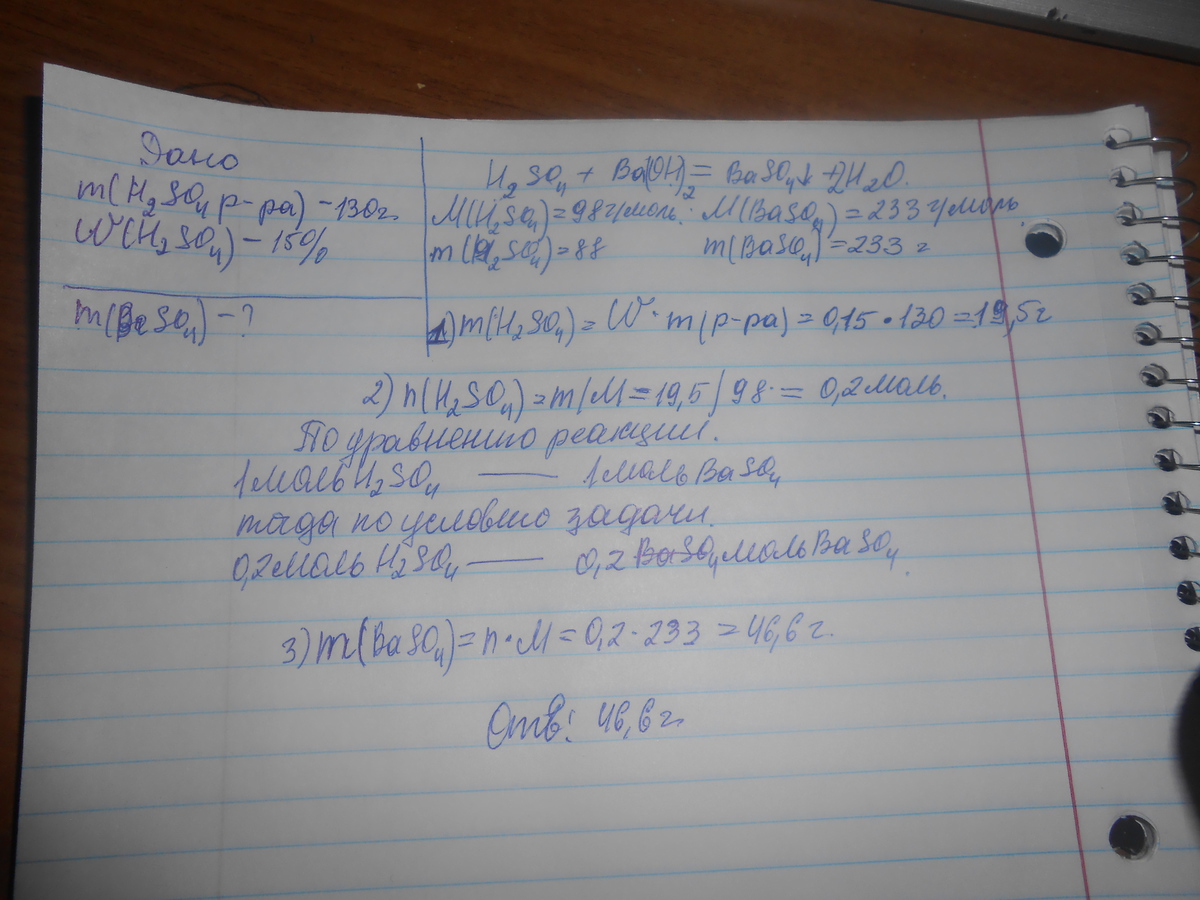 Дано
m(H₂SO₄ р-ра) - 130г.
W(H₂SO₄) - 15%
m(BaSO₄) - ?
H₂SO₄ + Ba(OH)₂ = BaSO₄↓ + 2H₂O.
M(H₂SO₄) = 98г/моль. M(BaSO₄) = 233г/моль
m(H₂SO₄) = 88 m(BaSO₄) = 233 г
1) m(H₂SO₄) = W · m(р-ра) = 0,15 · 130 = 19,5г
2) n(H₂SO₄) = m/M = 19,5/98 = 0,2моль.
По уравнению реакции.
1моль H₂SO₄ — 1моль BaSO₄
тогда по условию задачи.
0,2моль H₂SO₄ — 0,2 BaSO₄ моль BaSO₄.
3) m(BaSO₄) = n · M = 0,2 · 233 = 46,6 г.
Отв: 46,6 г.